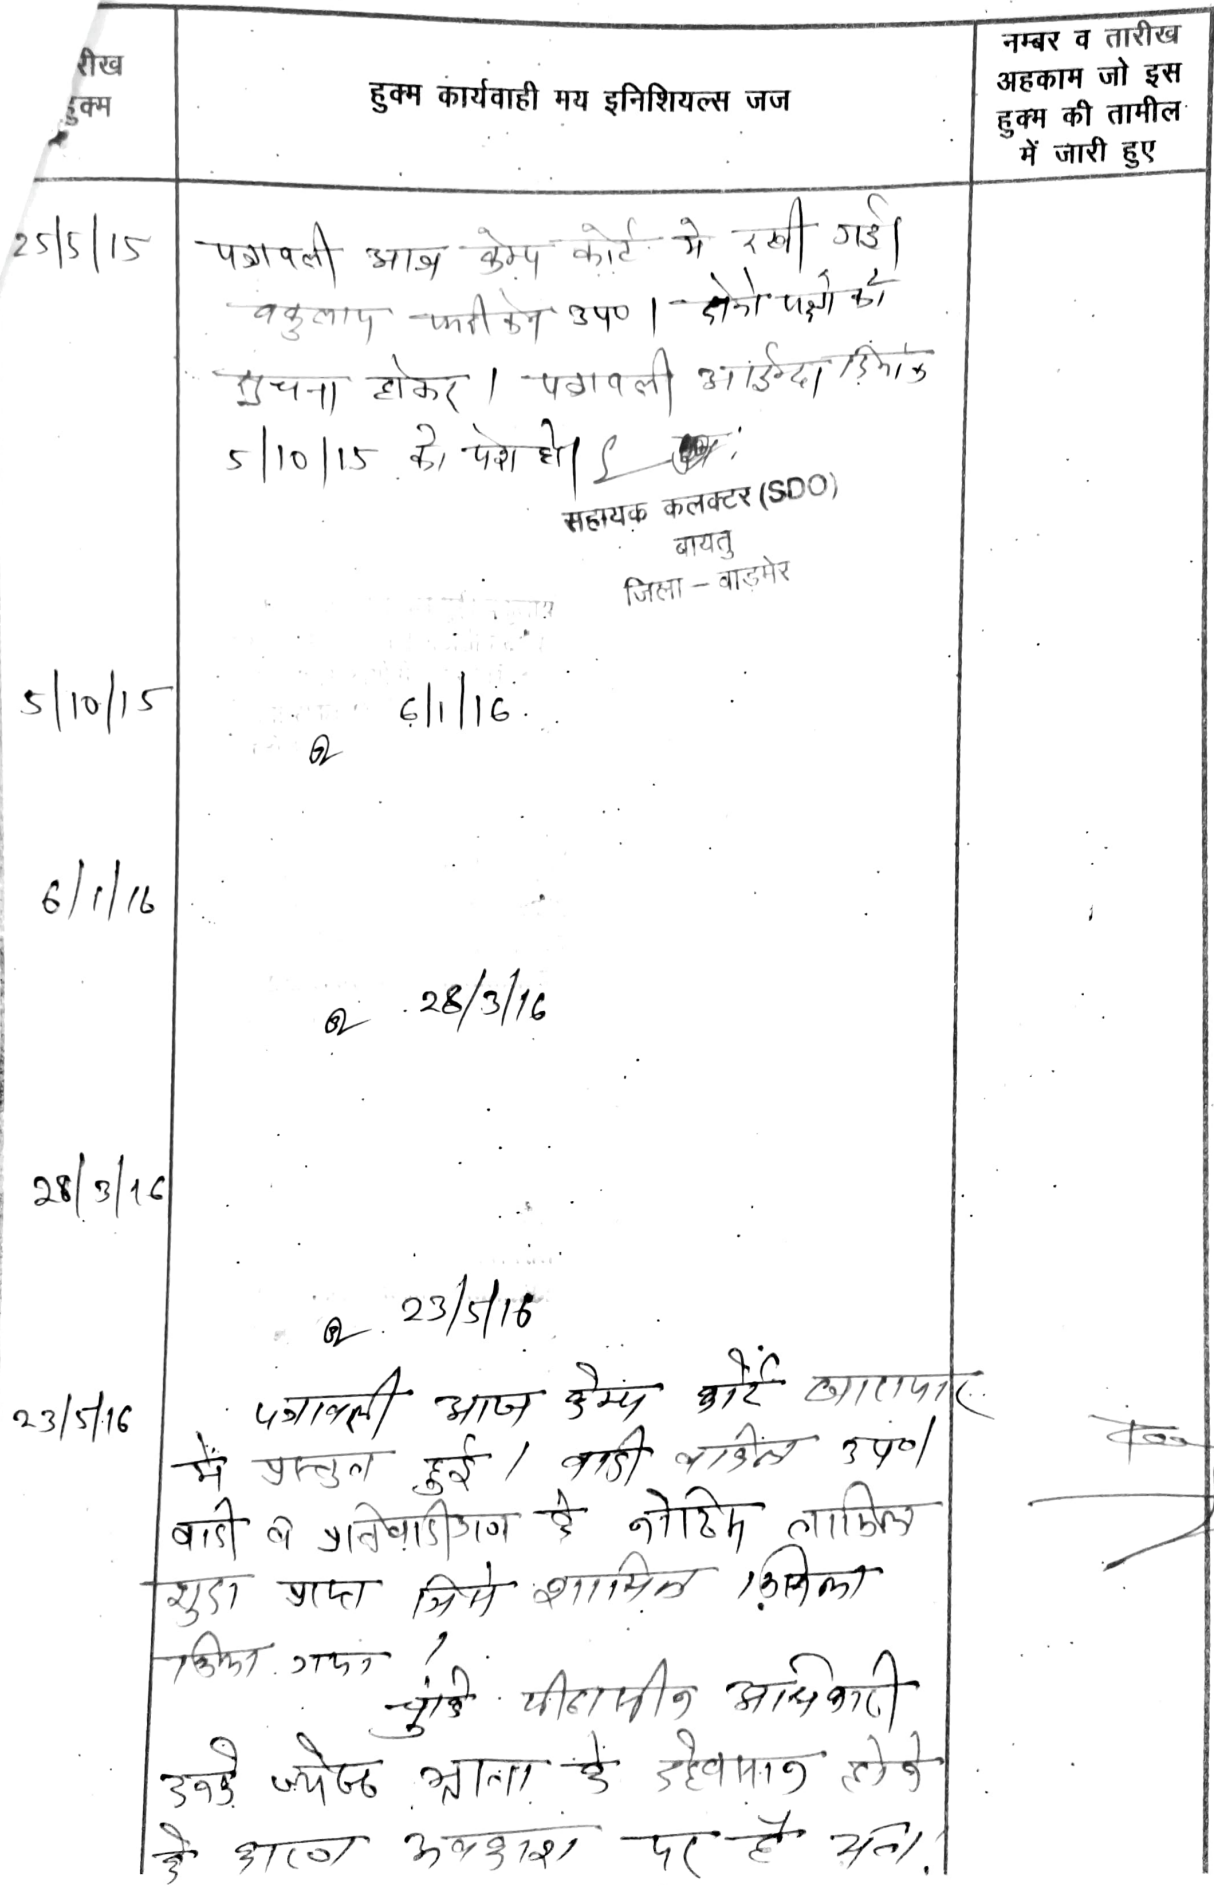 रीख
हुक्म
हुक्म कार्यवाही मय इनिशियल्स जज
नम्बर व तारीख
अहकाम जो इस
हुक्म की तामील
में जारी हुए
25/5/15 पत्रावली आज केम्प कोर्ट मे रखी गई।
उप०। दोनो पक्षो को
सुचना होकर। पत्रावली आईन्दा दिनांक
5/10/15 को पेश हो।
सहायक कलक्टर (SDO)
बायतु
जिला - बाड़मेर
5/10/15 6/1/16
6/1/16
28/3/16
28/3/16
23/5/16
23/5/16 पत्रावली आज केम्प कोर्ट
में प्रस्तुत हुई। वादी वकील उप०।
वादी व प्रतिवादीगण के नोटिस तामिल
शुदा प्राप्त जिसे शामिल मिसल
किया गया।
चुंकि पीठासीन अधिकारी
उनके ज्येष्ठ भ्राता के देहवसान होने
के कारण अवकाश पर है अतः